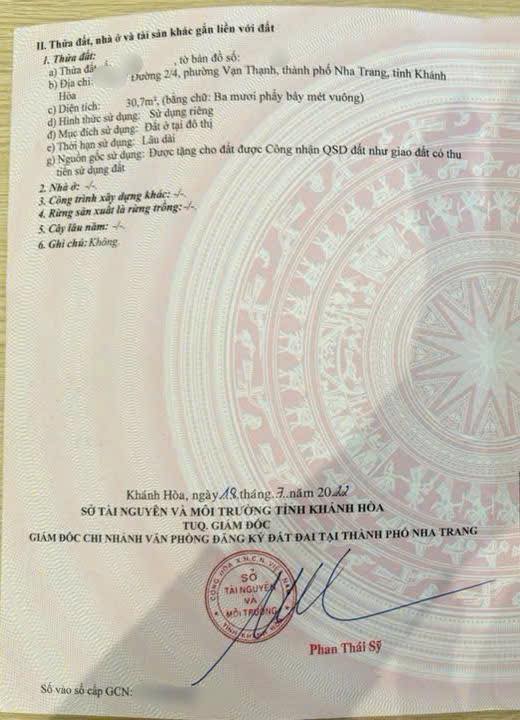 II. Thửa đất, nhà ở và tài sản khác gắn liền với đất
1. Thửa đất:
a) Thửa đất , tờ bản đồ số:
b) Địa chỉ: Đường 2/4, phường Vạn Thạnh, thành phố Nha Trang, tỉnh Khánh
Hòa
c) Diện tích: 30,7m², (bằng chữ: Ba mươi phẩy bảy mét vuông)
d) Hình thức sử dụng: Sử dụng riêng
đ) Mục đích sử dụng: Đất ở tại đô thị
e) Thời hạn sử dụng: Lâu dài
g) Nguồn gốc sử dụng: Được tặng cho đất được Công nhận QSD đất như giao đất có thu
tiền sử dụng đất
2. Nhà ở: -/-
3. Công trình xây dựng khác: -/-
4. Rừng sản xuất là rừng trồng: -/-
5. Cây lâu năm: -/-
6. Ghi chú: Không.
Khánh Hòa, ngày 18 tháng 7 năm 2022
SỞ TÀI NGUYÊN VÀ MÔI TRƯỜNG TỈNH KHÁNH HÒA
TUQ. GIÁM ĐỐC
GIÁM ĐỐC CHI NHÁNH VĂN PHÒNG ĐĂNG KÝ ĐẤT ĐAI TẠI THÀNH PHỐ NHA TRANG
CỘNG HÒA X.H.C.N VIỆT NAM
SỞ
TÀI NGUYÊN
VÀ
MÔI TRƯỜNG
TỈNH KHÁNH HÒA
Phan Thái Sỹ
Số vào sổ cấp GCN: